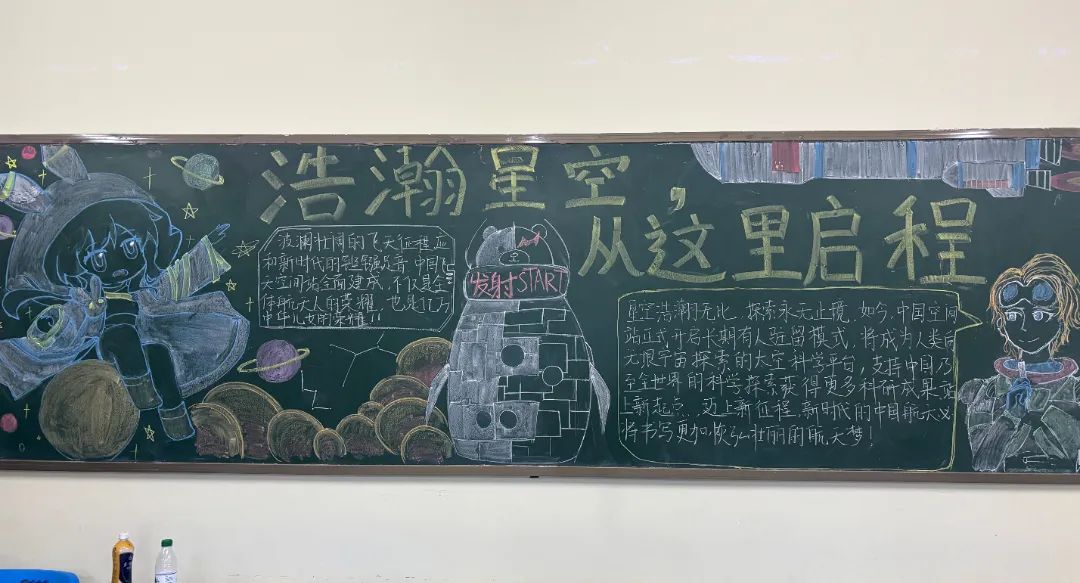 浩瀚星空,
从这里启程
波澜壮阔的飞天征程
和新时代的 强 音 中国
天空间站全面建成,不仅是全
体航天人的荣耀,也是亿万
中华儿女的荣耀!!
发射START
星空浩瀚无比,探索永无止境,如今,中国空间
站正式开启长期有人驻留模式,将成为人类
无限宇宙探索的太空科学平台,支持中国乃
至全世界的科学探索获得更多科研成果
上新起点,迈上新征程,新时代的中国航天
将书写更加恢弘壮丽的航天梦!